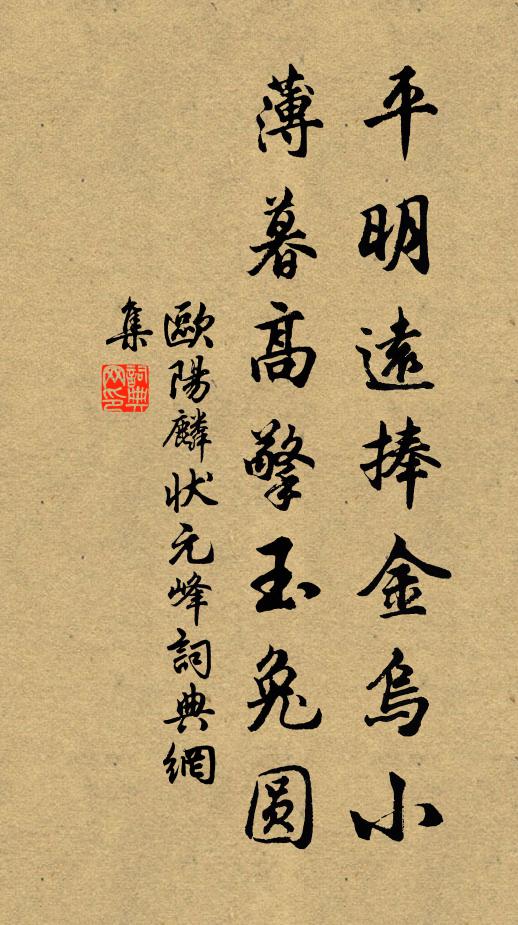 平明遠捧金烏小
薄暮高擎玉兔圆
歐陽麟状元峰詞典網
集
詞典網印